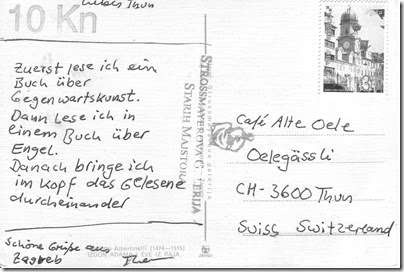 10 Kn
Zuerst lese ich ein
Buch über
Gegenwartskunst.
Dann lese ich in
einem Buch über
Engel.
Danach bringe ich
im Kopf das Gelesene
durcheinander
Schöne Grüße aus
Zagreb
Albertinelli (1474-1515)
IZGON ADAMA I EVE IZ RAJA
STROSSMAYEROVA G
ERIJA
STARIH MAJSTORA
Café Alte Oele
Oelegässli
CH-3600 Thun
Suiss Switzerland